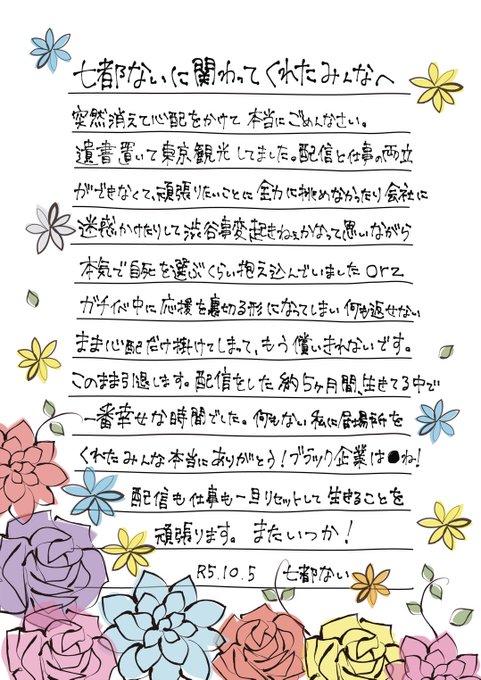 七都ないに関わってくれたみんなへ
突然消えて心配をかけて本当にごめんなさい。
遺書置いて東京観光してました。配信と仕事の両立
ができなくて、頑張りたいことに全力に挑めなかったり会社に
迷惑かけたりして渋谷事変起きねぇかなって思いながら
本気で自死を選ぶくらい抱え込んでいましたorz
ガチイベ中に応援を裏切る形になってしまい何も返せない
まま心配だけ掛けてしまって、もう償いきれないです。
このまま引退します。配信をした約5ヶ月間、生きてる中で
一番幸せな時間でした。何もない私に居場所を
くれたみんな本当にありがとう!ブラック企業は●ね!
配信も仕事も一旦リセットして生きることを
頑張ります。またいつか!
R5.10.5 七都ない